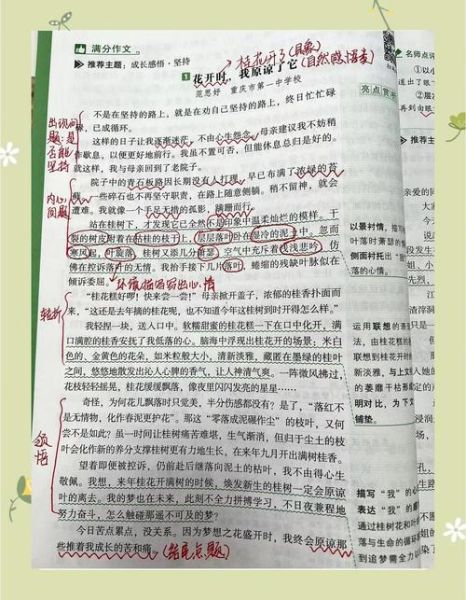 满分作文
推荐主题：成长感悟·坚持
桂花开了(具象)
1 花开时，我原谅了它
(自然感悟类)
范思妤 重庆市第一中学校
不是在坚持的路上，就是在劝自己坚持的路上，终日忙忙碌
碌，已成循环。
这样的日子让我逐渐迷茫，不由心生怨念。母亲建议我不妨稍
作歇息，以便更好地前行。我虽不置可否，但能休息总归是好的。
就这样，我与母亲回到了老院子。
院子中的青石板路因长期没有人打理，早已布满了浓绿的苔
一些碎石也不再坚守职责，在路上随意侧躺。稍不留神，就会
遭难。我就像一个手足无措的孤影，踽踽而行。
站在桂树下，才发现它已全然不是印象中温柔灿烂的模样。干
裂的树皮附着在枯桂的枝干上，层层落叶卧在湿冷的泥土中。忽而
寒风起，叶旋落，桂树又添几分萧瑟。空气中充斥着浅浅悲吟，仿
佛在控诉落叶的无情。我抬手接下几片落叶，蜷缩的残缺叶脉似在
倾诉委屈。
环境描写写出心情
“桂花糕好嘞！快来尝一尝！”母亲掀开盖子，浓郁的桂香扑面而
来，“这还是去年摘的桂花呢，也不知道今年这桂树到时开得怎么样。”
我轻捏一块，送入口中。软糯甜蜜的桂花糕一下在口中化开，满
口满腔的桂香安抚了我低落的心。脑海中浮现出桂花开的场景；米白
色的、金黄色的花朵，如米粒般大小，清新淡雅，藏匿在墨绿的桂叶
之间，悠悠地散发出沁人心脾的香气，让人神清气爽。一阵微风拂过，
花枝轻轻摇晃，桂花缓缓飘落，像夜里闪闪发亮的星星……
奇怪，为何花儿飘落时只觉美，半分伤感都没有？是了，“落红不
是无情物，化作春泥更护花”。那这“零落成泥碾作尘”的枝叶，又何
尝不是如此？虽一时间让桂树痛苦难堪，生气渐消，但归于尘土的枝
叶会化作新的养分支撑桂树更有力地生长，在来年九月开出满树桂香。
望着即便被控诉，仍前赴后继落向泥土的枯叶，我不由得心生
敬佩。我想，来年桂花开满树的时候，焕发新生的桂树一定会原谅
叶的离去。我的梦也在未来，此刻不全力拼搏学习，不日夜兼程地
努力奋斗，怎么触碰那遥不可及的梦？
今日苦点累点，没关系。因为梦想之花盛开时，我终会原谅那
些推着我成长的苦和痛。
(结尾点题)
内心
问题
转折
领悟
名师点评
亮点赏析
以景衬情，描写
叶落时萧瑟的
侧面衬托出“我”
落的心情。
运用联想的
法，由桂花糕的
联想到桂花开时
新淡雅，与上文
的萎靡干枯形成
明对比，为下文
铺垫。
描写“我”的心
表达“我”的感
通过桂树花和叶
落与生命的循环
到追梦需全力以